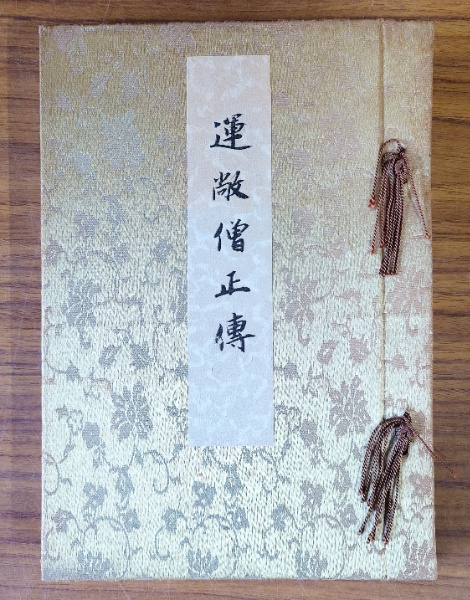 運敞僧正傳